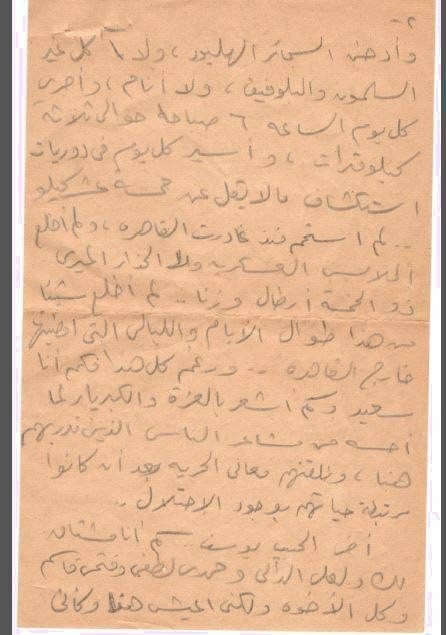 - ٢
وأدخن السجائر الهليود ، ولا آكل غير
السلمون والبلوبيف ، ولا أنام ، وأجرى
كل يوم الساعه ٦ صباحا حوالى ثلاثة
كيلومترات ، وأسير كل يوم فى دوريات
استكشاف مالا يقل عن خمسة عشر كيلو
.. لم استحم منذ غادرت القاهره ، ولم اخلع
الملابس العسكريه ولا الحذاء الميرى
ذو الخمسة أرطال وزنا .. لم اخلع شيئا
من هذا طوال الأيام والليالى التى امضيتها
خارج القاهره .. ورغم كل هذا فكم أنا
سعيد وكم اشعر بالعزة والكبرياء لما
أحسه من مشاعر الناس الذين ندربهم
هنا ، ونلقنهم معانى الحريه بعد أن كانوا
مرتبطة حياتهم بوجود الإحتلال ..
أخى الحبيب يوسف .. كم أنا مشتاق
لك ولعلى الدالى وحمدى لطفى وفتحى قاسم
وكل الأخوه ولكنى اعيش هنا وكأنى